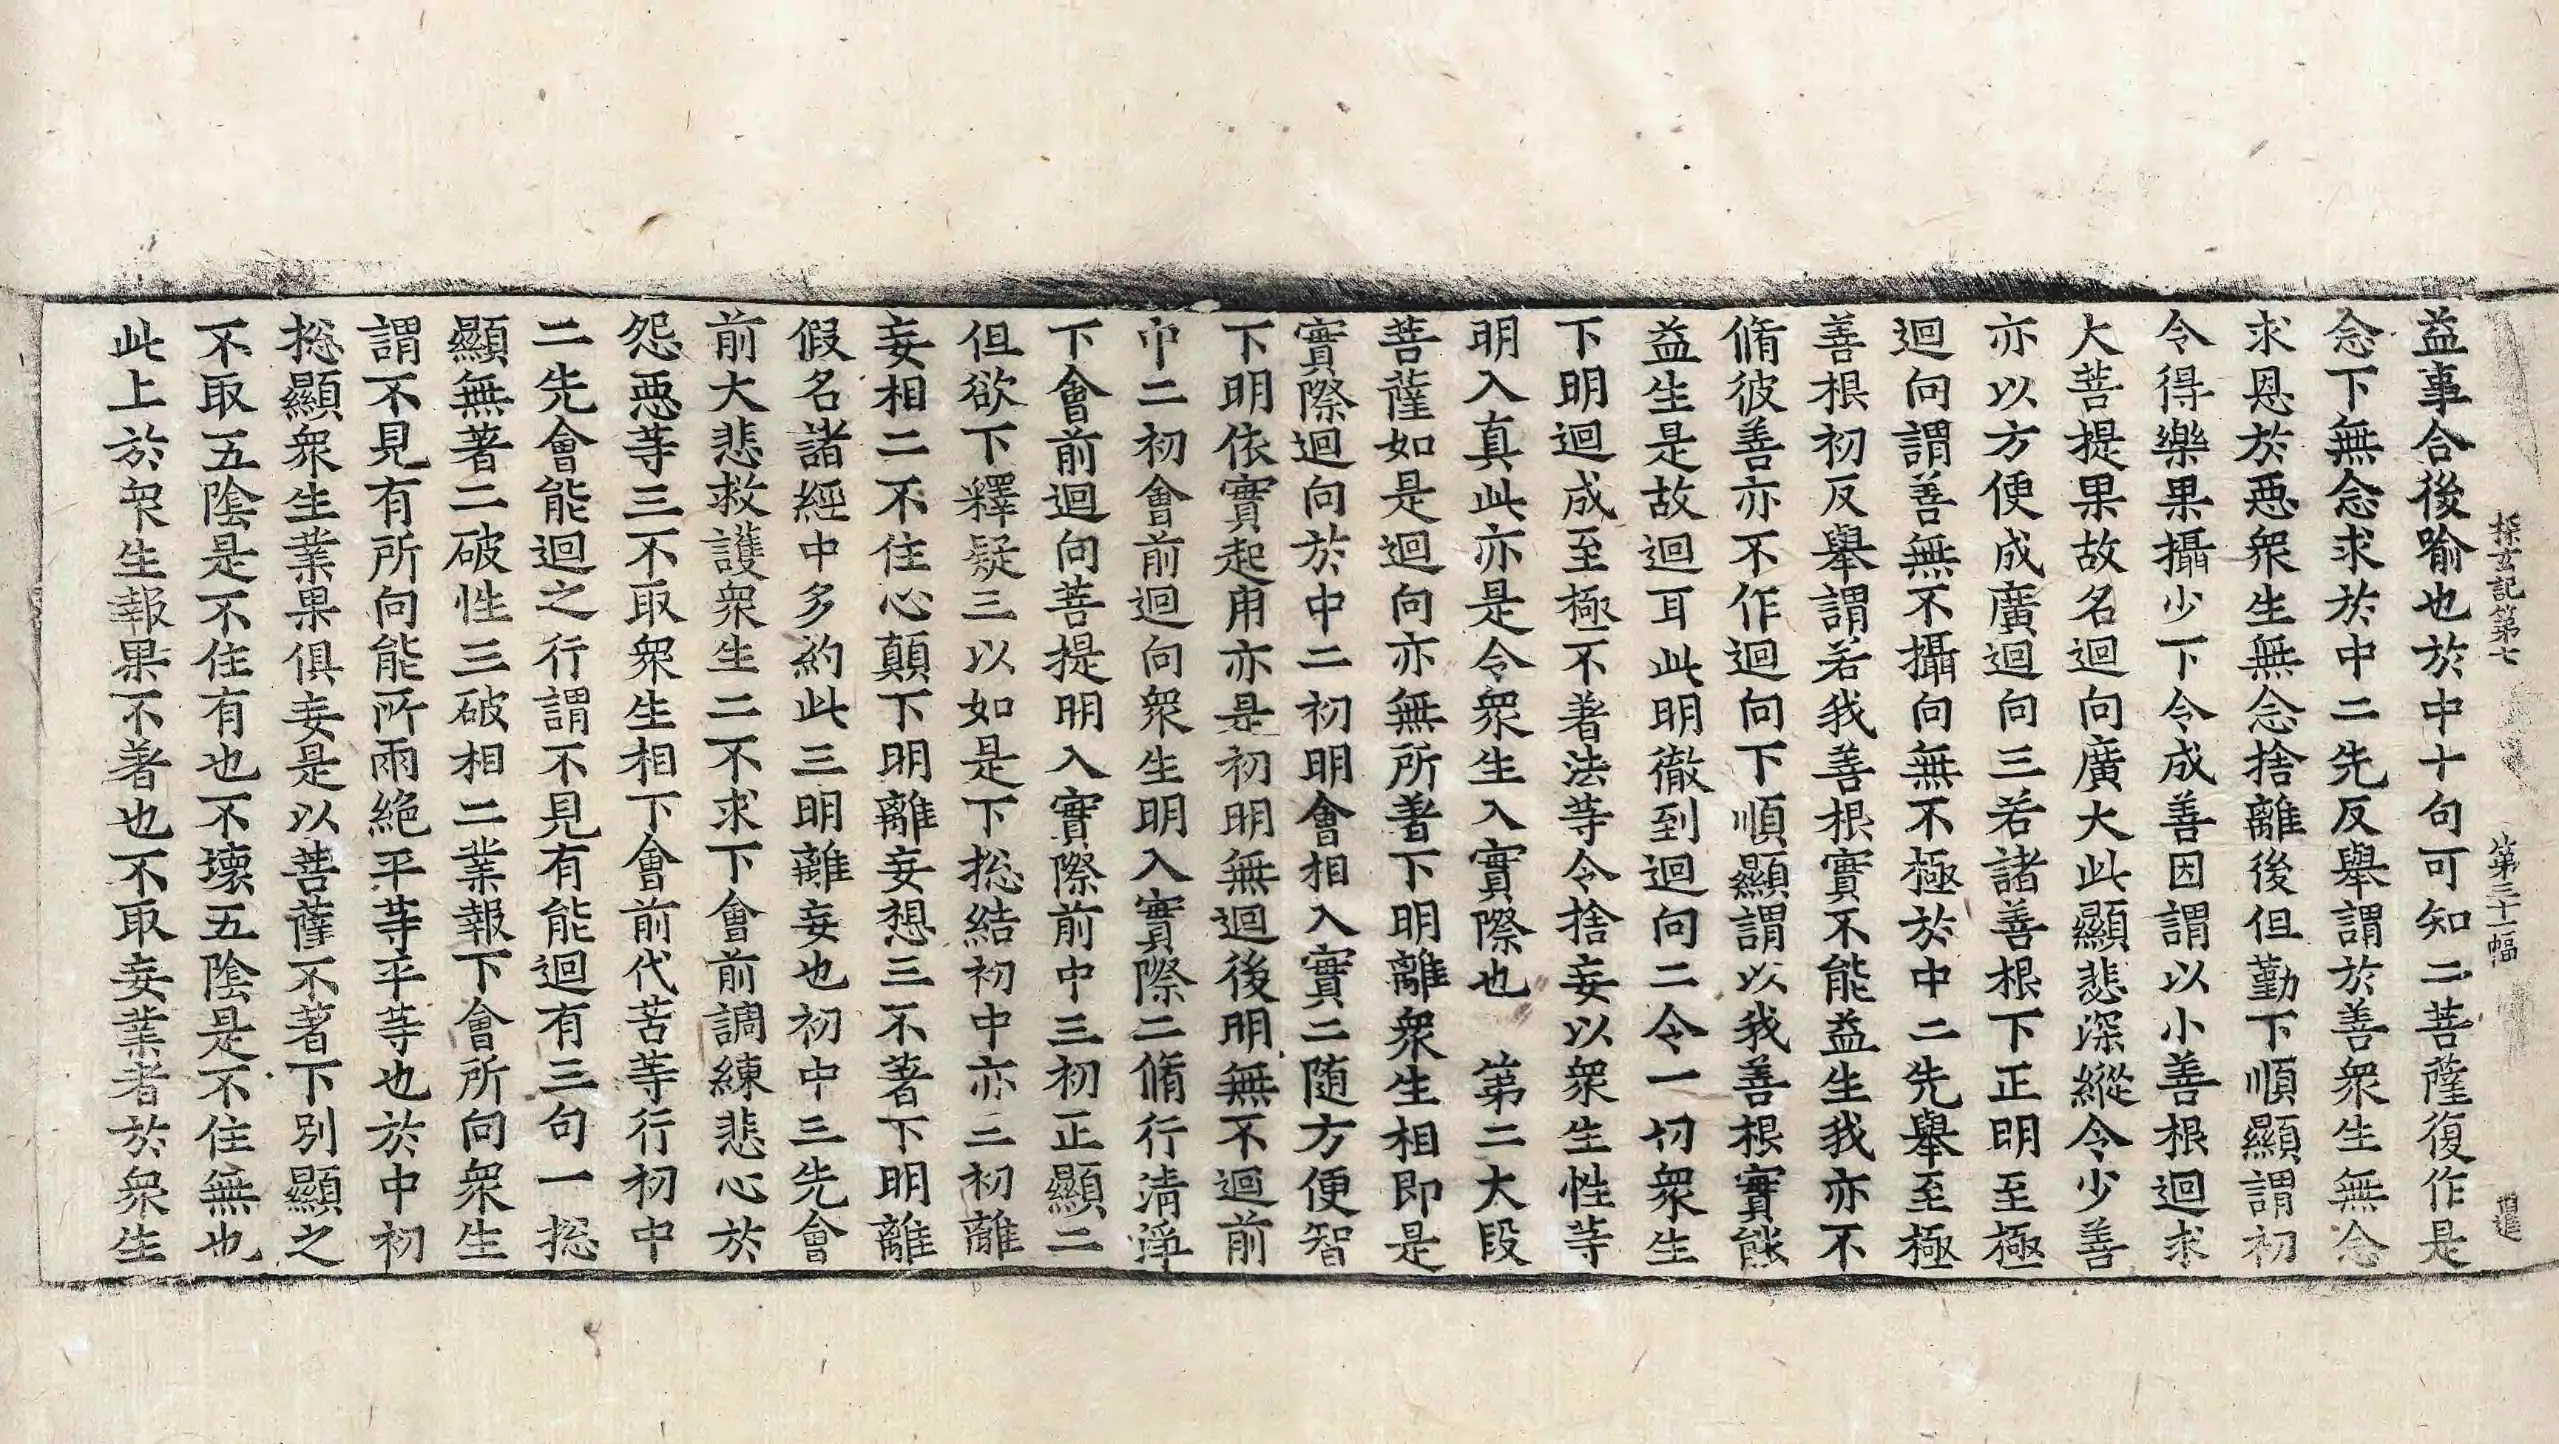 探玄記第七 第三十一幅 道進
益事合後喻也於中十句可知二菩薩復作是
念下無念求於中二先反舉謂於善衆生無念
求恩於惡衆生無念捨離後但勤下順顯謂初
令得樂果攝少下令成善因謂以小善根迴求
大菩提果故名迴向廣大此顯悲深縱令少善
亦以方便成廣迴向三若諸善根下正明至極
迴向謂善無不攝向無不極於中二先舉至極
善根初反舉謂若我善根實不能益生我亦不
脩彼善亦不作迴向下順顯謂以我善根實能
益生是故迴耳此明徹到迴向二令一切衆生
下明迴成至極不著法等令捨妄以衆生性等
明入真此亦是令衆生入實際也　第二大段
菩薩如是迴向亦無所著下明離衆生相即是
實際迴向於中二初明會相入實二随方便智
下明依實起用亦是初明無迴後明無不迴前
中二初會前迴向衆生明入實際二脩行清淨
下會前迴向菩提明入實際前中三初正顯二
但欲下釋疑三以如是下捴結初中亦三初離
妄相二不住心顛下明離妄想三不著下明離
假名諸經中多約此三明離妄也初中三先會
前大悲救護衆生二不求下會前調練悲心於
怨惡等三不取衆生相下會前代苦等行初中
二先會能迴之行謂不見有能迴有三句一捴
顯無著二破性三破相二業報下會所向衆生
謂不見有所向能所兩絶平等平等也於中初
捴顯衆生業果俱妄是以菩薩不著下別顯之
不取五陰是不住有也不壊五陰是不住無也
此上於衆生報果不著也不取妄業者於衆生